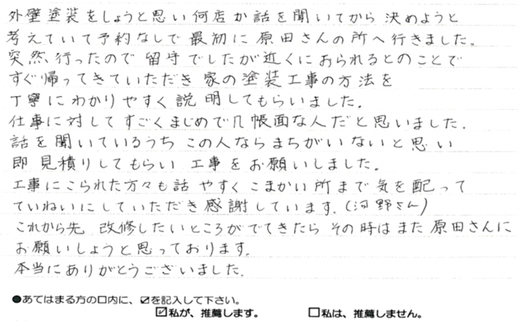 外壁塗装をしようと思い何店か話を聞いてから決めようと
考えていて予約なしで最初に原田さんの所へ行きました。
突然、行ったので留守でしたが近くにおられるとのことで
すぐ帰ってきていただき家の塗装工事の方法を
丁寧にわかりやすく説明してもらいました。
仕事に対してすごくまじめで几帳面な人だと思いました。
話を聞いているうちこの人ならまちがいないと思い
即見積りしてもらい工事をお願いしました。
工事にこられた方々も話やすくこまかい所まで気を配って
ていねいにしていただき感謝しています。(河野さん)
これから先改修したいところがでてきたらその時はまた原田さんに
お願いしようと思っております。
本当にありがとうございました。
●あてはまる方の口内に、☑を記入して下さい。
☑私が、推薦します。 □私は、推薦しません。